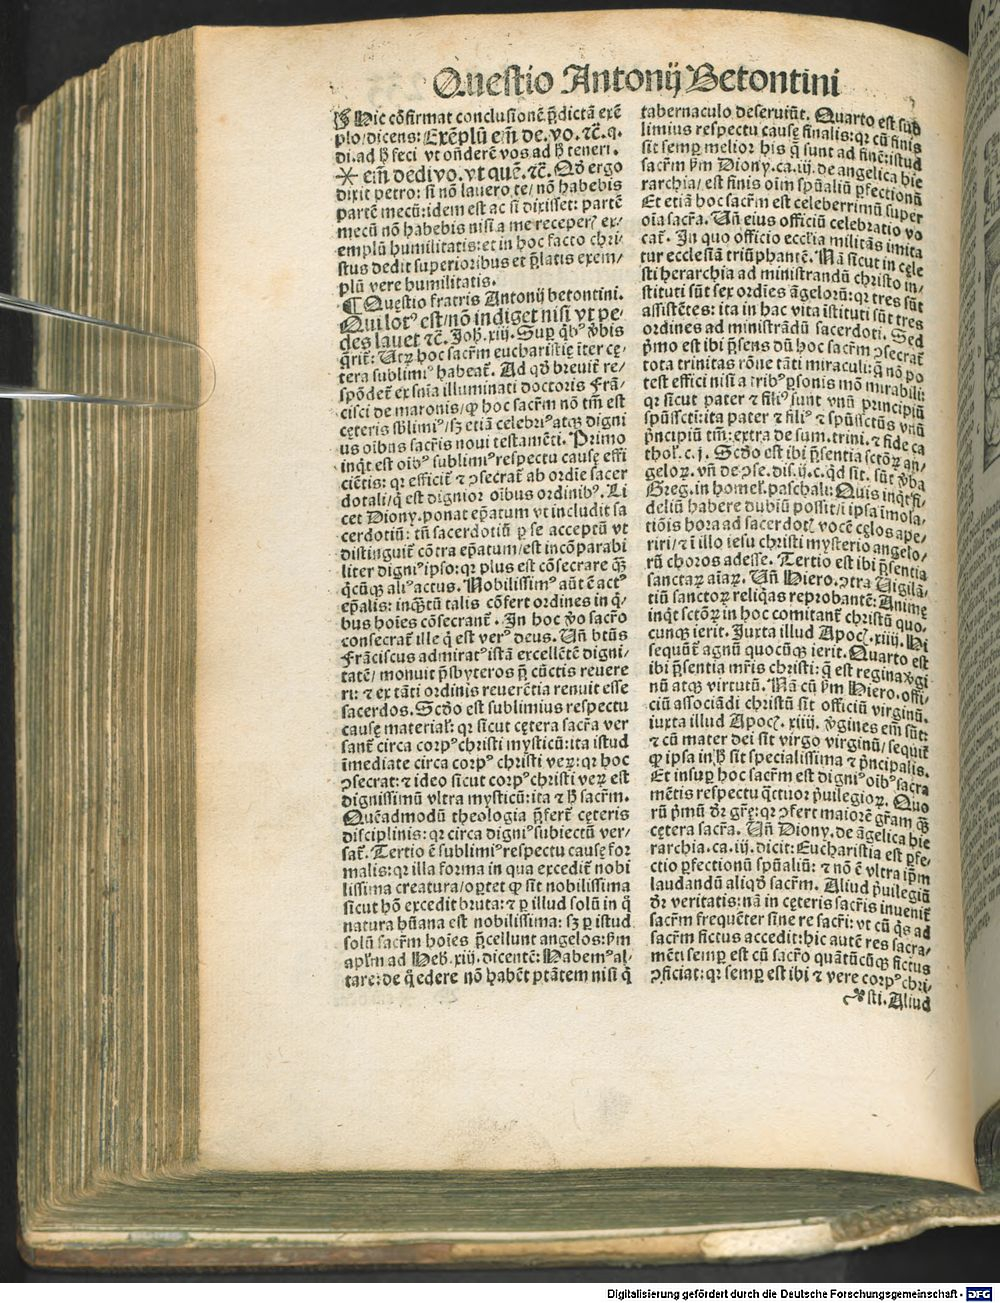 Questio Antonij Betontini
Hic cōfirmat conclusionē p̄dictā exē
plo/dicens: Exēplū em̄ de. vo. ⁊c̄. q.
di. ad ꝧ feci vt on̄derē vos ad ꝧ teneri.
em̄ dedi vo. vt quē. ⁊c̄. Qđ ergo
dixit petro: si nō lauero te/ nō habebis
partē mecū: idem est ac si dixisset: partē
mecū nō habebis nisi a me receperꝭ ex/
emplū humilitatis: et in hoc facto chri/
stus dedit superioribus et p̄latis exem/
plū vere humilitatis.
¶ Questio fratris Antonij betontini.
Qui lotꝰ est/nō indiget nisi vt pe/
des lauet ⁊c̄. Joh̄. xiij. Suꝑ qͥbꝰ v̄bis
q̄rit̄: Utꝝ hoc sacr̄m eucharistię īter cę/
tera sublimiꝰ habeat̄. Ad qđ breuit̄ re/
spōdet̄ ex sn̄ia illuminati doctoris Frā/
cisci de maronis/ ꝙ hoc sacr̄m nō tm̄ est
cęteris sb̄limiꝰ/ sꝫ etiā celebriꝰ atqꝫ digni
us oībus sacr̄is noui testamēti. Primo
inqͥt est oībꝰ sublimiꝰ respectu causę effi
ciētis: qꝛ efficit̄ ⁊ ꝯsecrat̄ ab ordīe sacer
dotali/ q̄ est dignior oībus ordinibꝰ. Li
cet Diony. ponat ep̄atum vt includit sa
cerdotiū: tn̄ sacerdotiū ꝑ se acceptū vt
distinguit̄ cōtra ep̄atum/ est incōparabi
liter digniꝰ ipso: qꝛ plus est cōsecrare qꝫ
q̄cūqꝫ aliꝰ actus. Nobilissimꝰ aūt ē actꝰ
ep̄alis: inqͣtū talis cōfert ordines in q̄/
bus hoīes cōsecrant̄. In hoc v̄o sacr̄o
consecrat̄ ille q̄ est verꝰ deus. Un̄ btūs
Frāciscus admiratꝰ istā excellētē digni/
tatē/ monuit p̄sbyteros p̄ cūctis reuere
ri: ⁊ ex tāti ordinis reuerētia renuit esse
sacerdos. Scđo est sublimius respectu
causę material̄: qꝛ sicut cętera sacr̄a ver
sant̄ circa corpꝰ christi mysticū: ita istud
īmediate circa corpꝰ christi veꝝ: qꝛ hoc
ꝯsecrat: ⁊ ideo sicut corpꝰ christi veꝝ est
dignissimū vltra mysticū: ita ⁊ ꝧ sacr̄m.
Quēadmodū theologia p̄fert̄ cęteris
disciplinis: qꝛ circa digniꝰ subiectū ver/
sat̄. Tertio ē sublimiꝰ respectu causę for
malis: qꝛ illa forma in qua excedit̄ nobi
lissima creatura/ oꝑtet ꝙ sit nobilissima
sicut hō excedit bruta: ⁊ ꝑ illud solū in q̄
natura hūana est nobilissima: sꝫ ꝑ istud
solū sacr̄m hoīes p̄cellunt angelos: ẜm
apl̄m ad Heb̄. xiij. dicentē: Habemꝰ al/
tare: de q̄ edere nō habēt ptātem nisi q̄
tabernaculo deseruiūt. Quarto est sub
limius respectu causę finalis: qꝛ cū finis
sit semꝑ melior his q̄ sunt ad finē: istud
sacr̄m ẜm Diony. ca. iij. de angelica hie
rarchia/ est finis oīm spūaliū ꝑfectionū
Et etiā hoc sacr̄m est celeberrimū super
oīa sacr̄a. Un̄ eius officiū celebratio vo
cat̄. In quo officio eccl̄ia militās imita
tur ecclesiā triūphantē. Nā sicut in cęle
sti herarchia ad ministrandū christo in/
stituti sūt sex ordīes āgeloꝝ: qꝛ tres sūt
assistētes: ita in hac vita īstituti sūt tres
ordines ad ministrādū sacerdoti. Sed
p̄mo est ibi p̄sens dū hoc sacr̄m ꝯsecrat̄
tota trinitas rōne tāti miraculi: q̄ nō po
test effici nisi a tribꝰ ꝑsonis mō mirabili:
qꝛ sicut pater ⁊ filiꝰ sunt vnū principiū
spūssctī: ita pater ⁊ filiꝰ ⁊ spūssctūs vnū
p̄ncipiū tm̄: extra de sum. trini. ⁊ fide ca
thol̄. c. j. Scđo est ibi p̄sentia sctōꝝ an/
geloꝝ. vn̄ de ꝯse. dis. ij. c. qđ sit. sūt v̄ba
Greg. in homel̄. paschali: Quis inq̄t fi/
deliū habere dubiū possit/ ī ipsa īmola/
tiōis hora ad sacerdotꝭ vocē cęlos ape/
riri/ ⁊ ī illo iesu christi mysterio angelo/
rū choros adesse. Tertio est ibi p̄sentia
sanctaꝝ aīaꝝ. Un̄ Hiero. ꝯtra Uigilā/
tiū sanctoꝝ reliq̄as reprobantē: Animę
inq̄t sctōꝝ in hoc comitant̄ christū quo/
cunqꝫ ierit. Juxta illud Apocꝭ. xiiij. Hi
sequūt̄ agnū quocūqꝫ ierit. Quarto est
ibi p̄sentia mr̄is christi: q̄ est regina v̄gi
nū atqꝫ virtutū. Nā cū ẜm Hiero. offi/
ciū associādi christū sit officiū virginū.
iuxta illud Apocꝭ. xiiij. v̄gines em̄ sūt:
⁊ cū mater dei sit virgo virginū/ sequit̄
ꝙ ipsa in ꝧ sit specialissima ⁊ p̄ncipalis.
Et insuꝑ hoc sacr̄m est digniꝰ oībꝰ sacra
mētis respectu q̄ttuor p̄uilegioꝝ. Quo
rū p̄mū dr̄ gr̄ę: qꝛ ꝯfert maiorē gr̄am qꝫ
cętera sacr̄a. Un̄ Diony. de āgelica hie
rarchia. ca. iij. dicit: Eucharistia est ꝑfe/
ctio ꝑfectionū spūaliū: ⁊ nō ē vltra ip̄m
laudandū aliqđ sacr̄m. Aliud p̄uilegiū
dr̄ veritatis: nā in cęteris sacr̄is inuenit̄
sacr̄m frequēter sine re sacr̄i: vt cū q̄s ad
sacr̄m fictus accedit: hic autē res sacra/
mēti semꝑ est cū sacr̄o quātūcūqꝫ fictus
ꝯficiat: qꝛ semꝑ est ibi ⁊ vere corpꝰ chri/
sti. Aliud
Digitalisierung gefördert durch die Deutsche Forschungsgemeinschaft - DFG